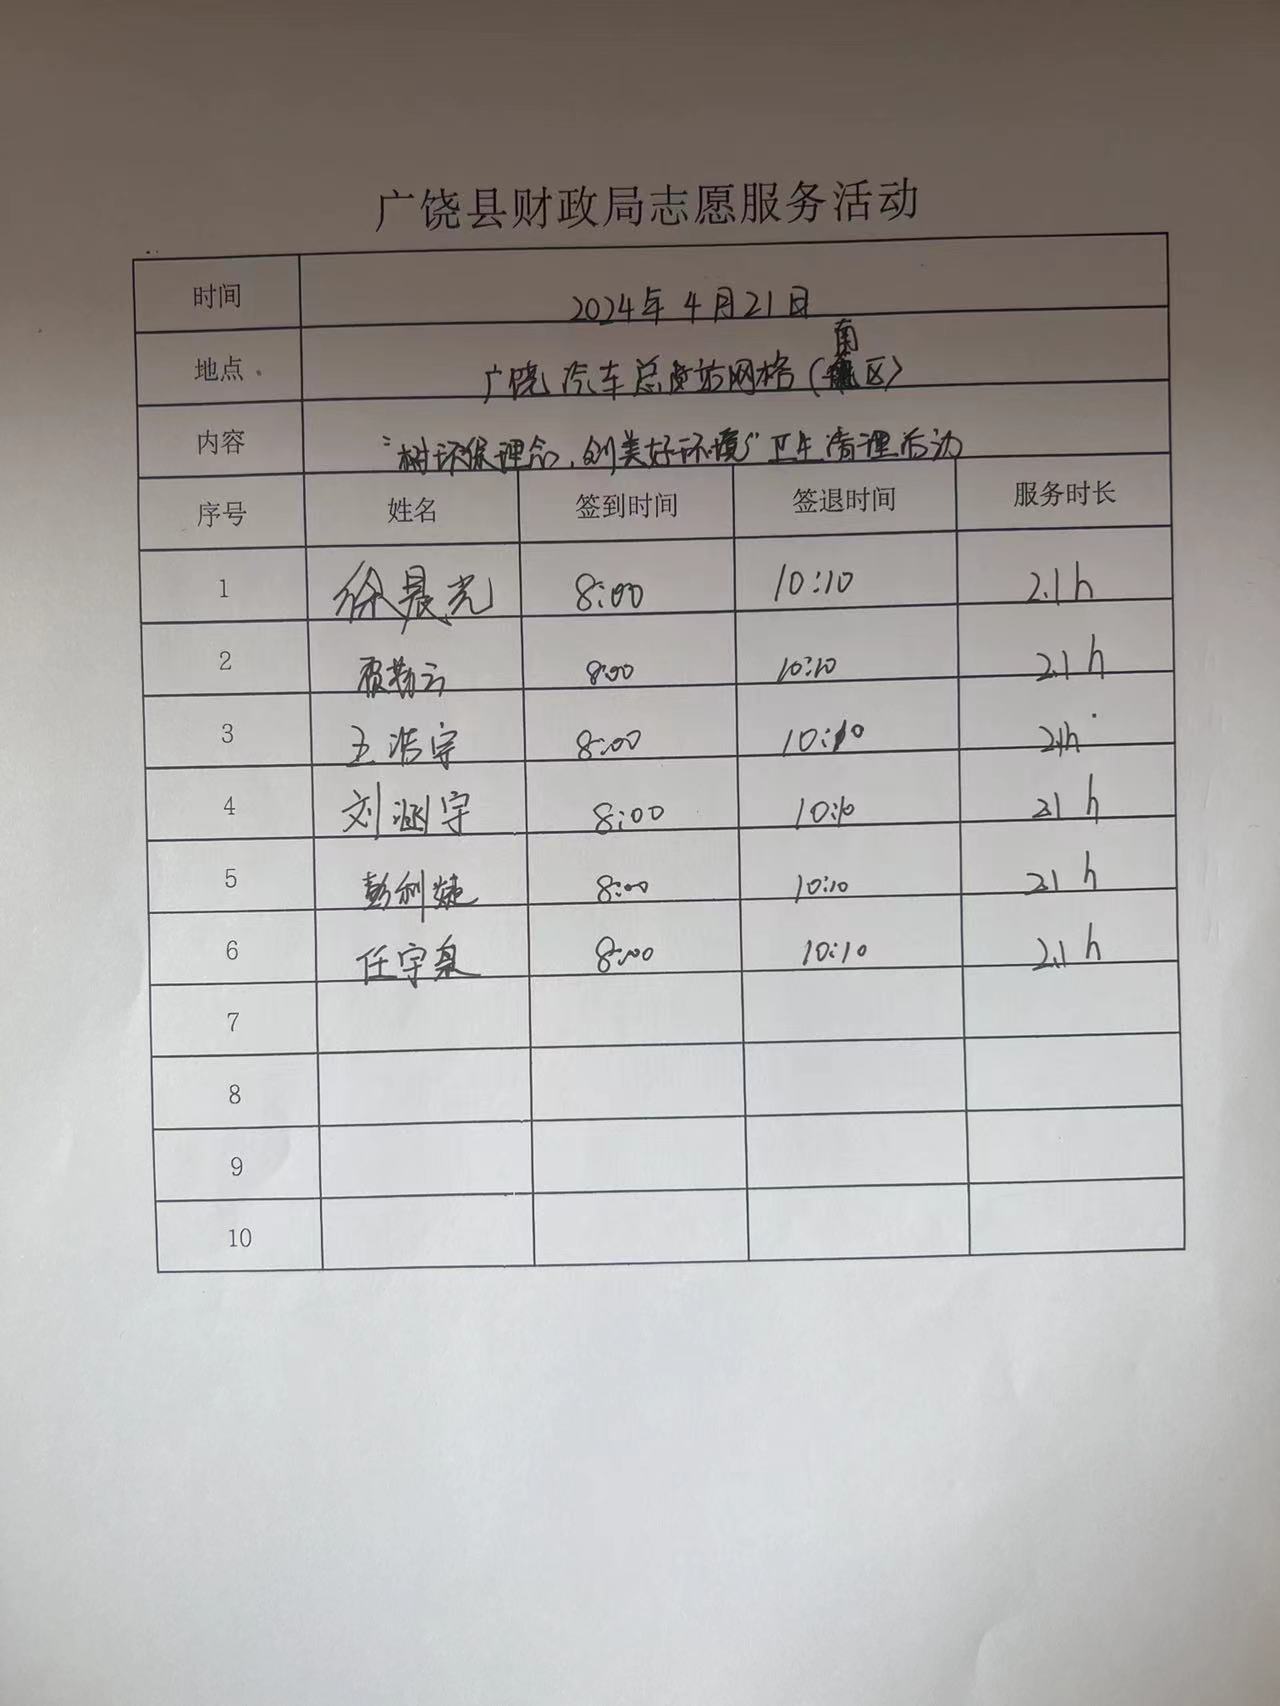 广饶县财政局志愿服务活动
时间 2024年4月21日
地点 广饶汽车总站网格(南区)
内容 "树环保理念,创美好环境"卫生清理活动
序号 姓名 签到时间 签退时间 服务时长
1 徐晨光 8:00 10:10 2.1h
2 贾勤云 8:00 10:10 2.1h
3 王浩宇 8:00 10:10 2.1h
4 刘涵宇 8:00 10:10 2.1h
5 彭利婕 8:00 10:10 2.1h
6 任宇泉 8:00 10:10 2.1h
7
8
9
10